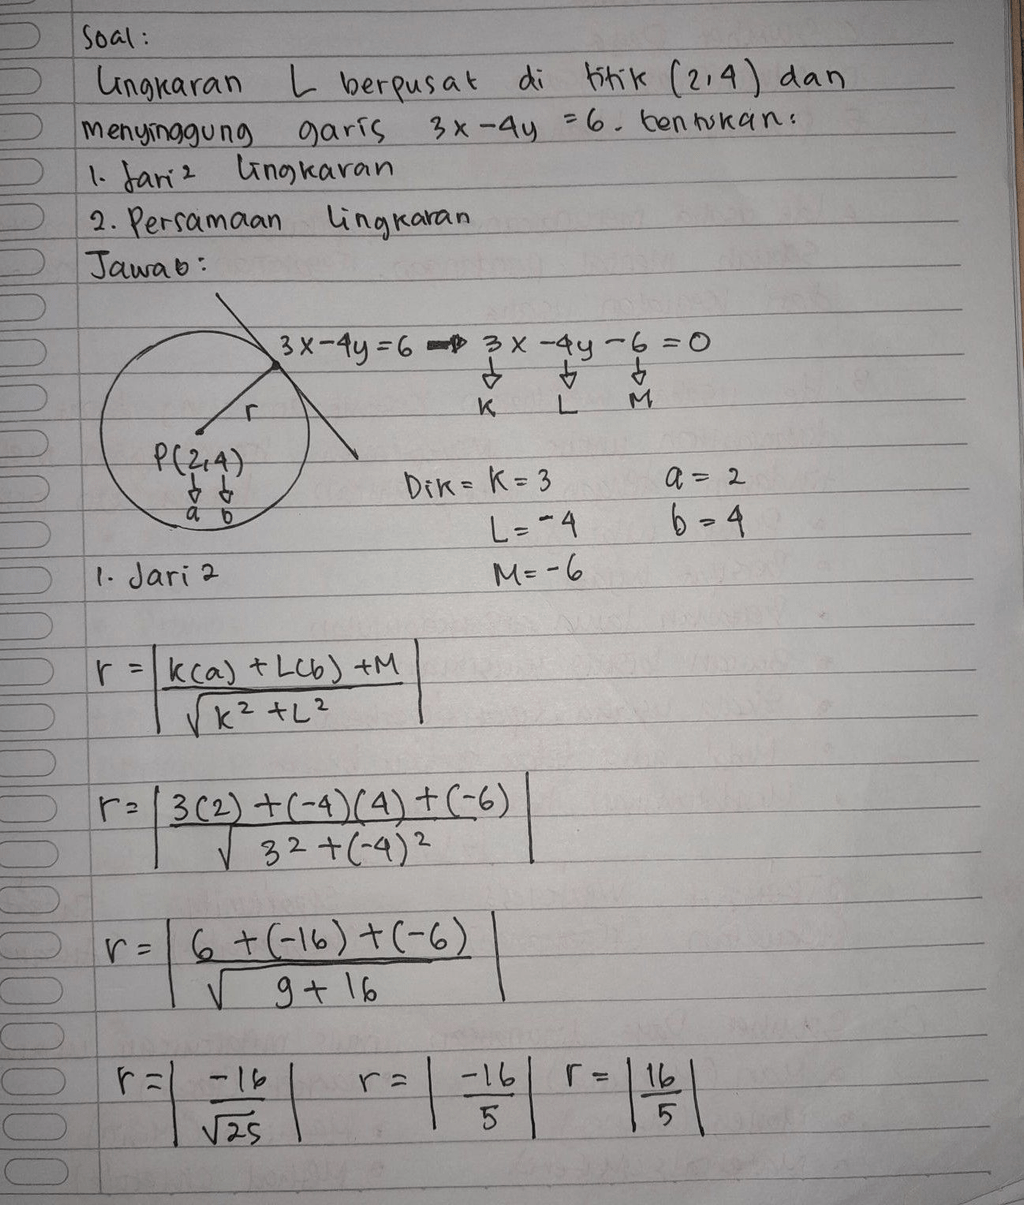 Soal:
Lingkaran L berpusat di titik (2,4) dan
menyinggung garis 3x-4y = 6. tentukan:
1. Jari2 Lingkaran
2. Persamaan lingkaran
Jawab:
3x-4y=6 → 3x-4y-6=0
↓ ↓ ↓
K L M
r
P(2,4)
↓ ↓
a b
Dik = K=3 a=2
L=-4 b=4
M=-6
1. Jari2
r = |K(a) + L(b) + M / √K² + L²|
r = |3(2) + (-4)(4) + (-6) / √3² + (-4)²|
r = |6 + (-16) + (-6) / √9 + 16|
r = |-16 / √25| r = |-16 / 5| r = |16 / 5|